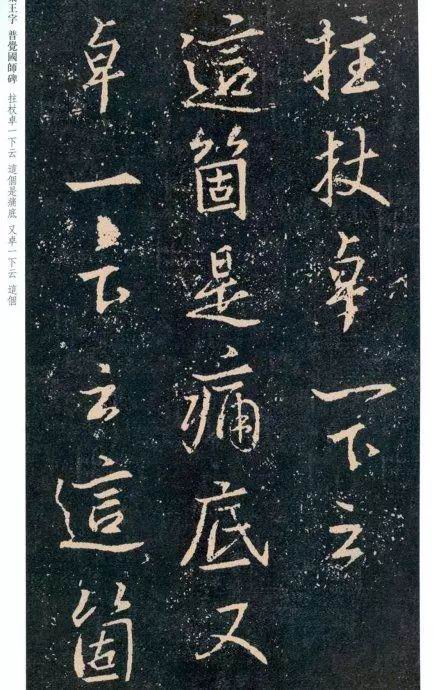 拄杖卓一下云
這箇是痛底又
卓一下云這箇
王字 普覺國師碑
拄杖卓一下云 這個是痛底 又卓一下云 這個